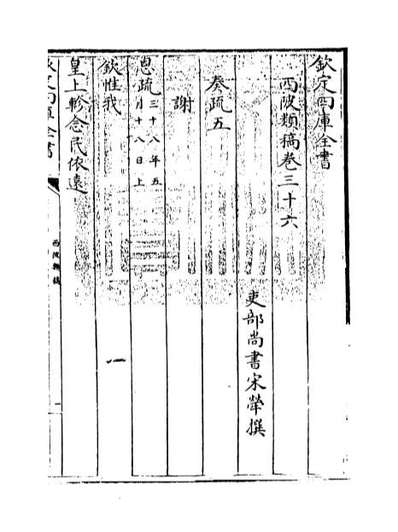 欽定四庫全書
西陂類稿卷三十六
吏部尚書宋犖撰
奏疏五
謝
恩疏三十八年五
月十八日上
欽惟我
皇上軫念民依遠
欽定四庫全書
西陂類稿